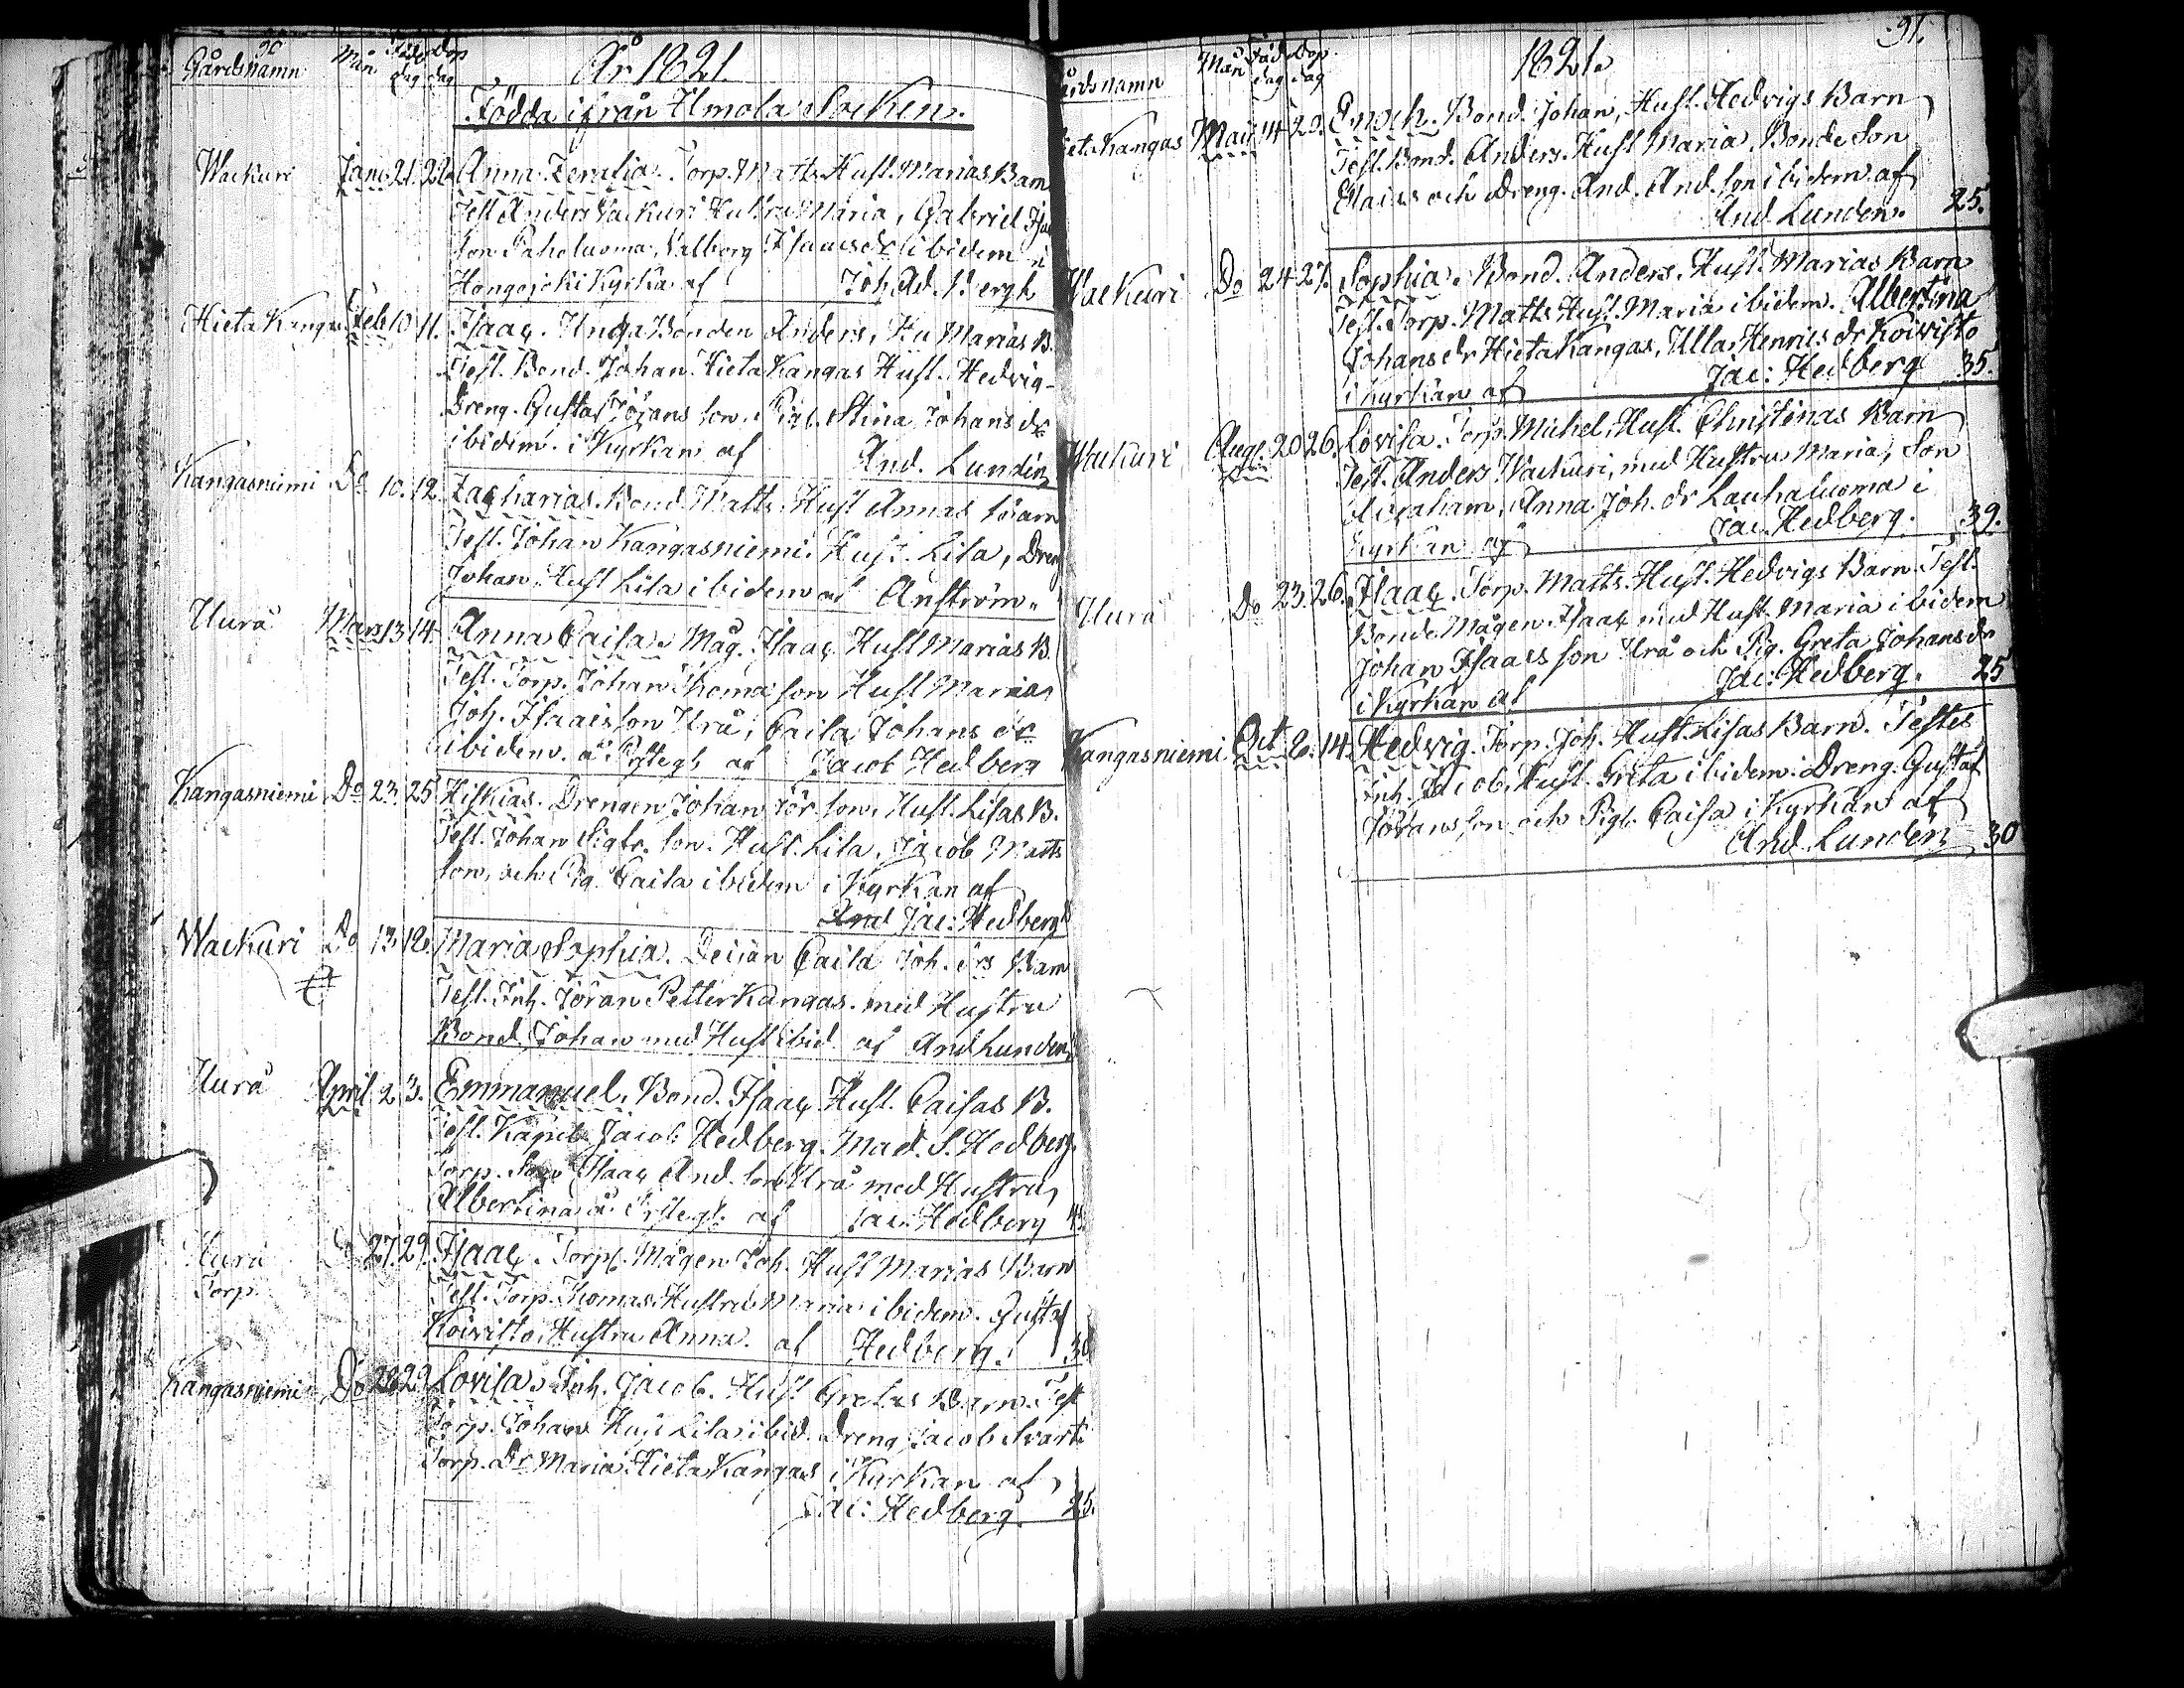 90
Gårdsnamn Mån Född dag Döp dag År 1821.
Födda ifrån Ilmola Socken.
Wackuri Jan. 21. 22. Anna Zeralia. Torp. Matts Hust. Marias Barn
Test Anders Wackuri Hustru Maria, Gabriel Isac
son Paholuoma, Valborg Isaacs dr ibidem i
Hongojoki Kyrka af Joh. Ad. Bergh
Hieta Kangas Feb. 10. 11. Isaac. Unga Bonden Anders, Hu Marias B.
Test. Bond. Johan Hieta Kangas Hust. Hedvig.
Dreng. Gustaf Jörans son. Pig. Stina Johans dr
ibidem. i Kyrkan af And. Lundén
Kangasniemi Do 10. 12. Zacharias. Bond Matts Hust Annas Barn
Test. Johan Kangasniemi. Hust. Lisa, Dreng
Johan, Hust Lisa ibidem af Anström
Hurå Mars 13. 14. Anna Caisa. Måg. Isaac Hust Marias B.
Test. Torp. Johan Thomas son Hust Maria,
Joh. Isaacs son Urå, Caisa Johans dr
ibidem. å Prsteg. af Jacob Hedberg
Kangasniemi Do 23. 25. Hiskias. Drengen Johan Jör. son. Hust. Lisas B.
Test. Johan Sigfr. son. Hust. Lisa, Jacob Matts
son, och Pig. Caisa ibidem i Kyrkan af
And Jac: Hedberg
Wackuri Do 13. 18. Maria Sophia. Deijan Caisa Joh. drs Barn
Test. Inh. Jöran Petterkangas. med Hustru
Bond. Johan med Hust ibid af And Lundén
Hurå April 2. 3. Emmanuel. Bond. Isaac Hust. Caisas B.
Test. Kapel. Jacob Hedberg. Mad. S. Hedberg.
Torp. Son Isaac And. son Urå med Hustru
Albertina å Prsteg. af Jac: Hedberg
Hurå Do 27. 29. Isaac. Torp. Mågen Joh. Hust Marias Barn
Torp.
Test. Torp. Thomas Hustru Maria ibidem. Gustaf
Koivisto, Hustru Anna. af Hedberg. 30
Kangasniemi Do 28 29 Lovisa. Inh. Jacob. Hust Gretas Barn. Test
Torp. Johan Hust Lisa ibid. Dreng Jacob Svart.
Torp. Dr Maria Hieta Kangas i Kyrkan af
Jac: Hedberg. 25.
91.
årds namn Mån Föd dag Döp dag 1821.
ieta Kangas Maij 14 20. Enoch. Bond. Johan, Hust. Hedvigs Barn
Test. Bond. Anders. Hust Maria, Bonde Son
Elaias och Dreng. And. And. son ibidem af
And Lunden. 25.
Wackuri Do 24 27. Sophia. Bond. Anders. Hust. Marias Barn
Test. Torp. Matts Hust. Maria ibidem. Albertina
Johans dr Hieta Kangas, Ulla Henrics dr Koivisto
i Kyrkan af Jac: Hedberg 35.
Wackuri Aug. 20 26. Lovisa. Torp. Michel, Hust. Christinas Barn
Test. Anders Wackuri, med Hustru Maria, Son
Abraham, Anna Joh. dr Lauhaluoma i
Kyrkan af Jac. Hedberg. 39.
Hurå Do 23. 26. Isaac. Torp. Matts. Hust. Hedvigs Barn. Test.
Bonde Mågen. Isaac med Hust. Maria ibidem
Johan Isaacs son Urå och Pig. Greta Johans dr
i Kyrkan af Jac: Hedberg. 25
Kangasniemi Oct 8. 14. Hedvig. Torp. Joh. Hust. Lisas Barn. Testes
Inh. Jacob, Hust. Greta ibidem. Dreng. Gustaf
Jörans son och Pig. Caisa i Kyrkan af
And. Lundén 30